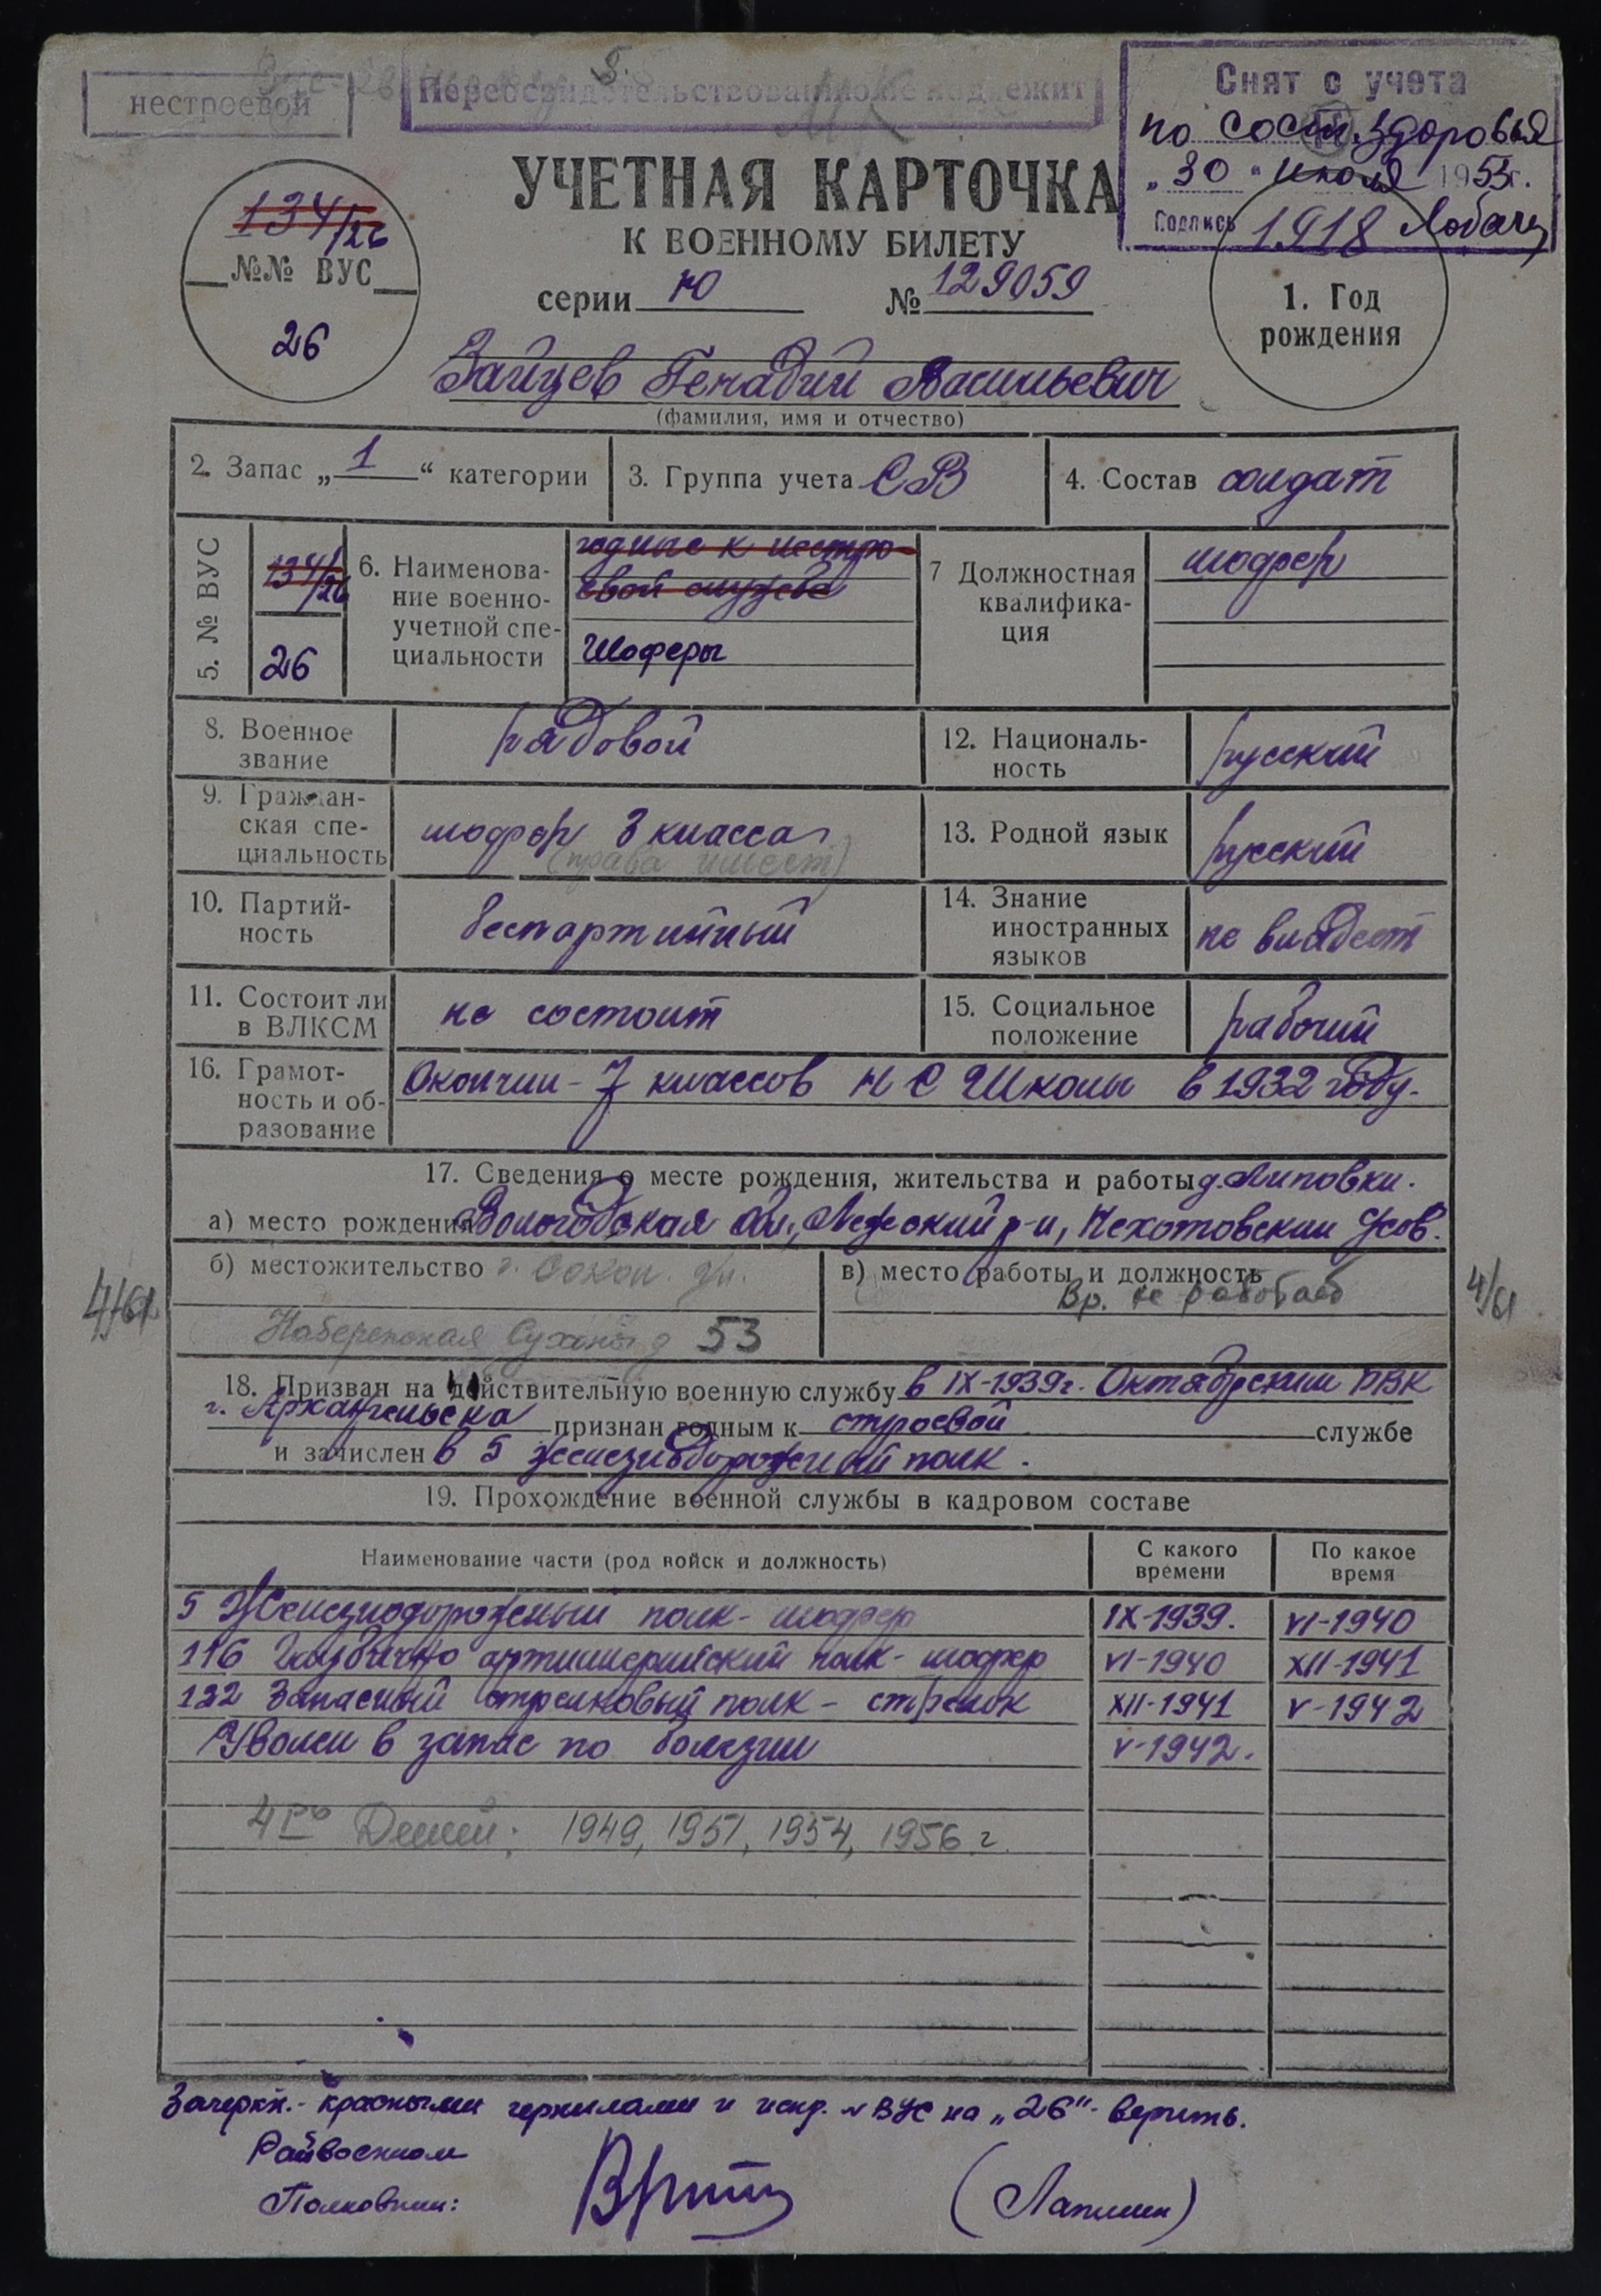 нестроевой
Переосвидетельствованию не подлежит
Снят с учета
по сост. здоровья
„30" июля 1953г.
Подпись
УЧЕТНАЯ КАРТОЧКА
К ВОЕННОМУ БИЛЕТУ
серии Ю № 129059
134/26
№№ ВУС
26
1918
1. Год
рождения
Зайцев Генадий Васильевич
(фамилия, имя и отчество)
2. Запас „1“ категории
3. Группа учета СВ
4. Состав солдат
5. № ВУС
134/26
26
6. Наименова-
ние военно-
учетной спе-
циальности
годные к нестро-
евой службе
Шоферы
7 Должностная
квалифика-
ция
шофер
8. Военное
звание
рядовой
12. Националь-
ность
русский
9. Граждан-
ская спе-
циальность
шофер 3 класса
(права имеет)
13. Родной язык
русский
10. Партий-
ность
беспартийный
14. Знание
иностранных
языков
не владеет
11. Состоит ли
в ВЛКСМ
не состоит
15. Социальное
положение
рабочий
16. Грамот-
ность и об-
разование
Окончил - 7 классов Н С Школы в 1932 году.
17. Сведения о месте рождения, жительства и работы д. Липовки.
а) место рождения Вологодская обл., Лежский р-н, Чехотовский с/сов.
б) местожительство г. Сокол. ул.
Набережная Сухоны д 53
в) место работы и должность
Вр. не работает
4/61
4/61
18. Призван на действительную военную службу в IX-1939г. Октябрьским РВК
г. Архангельска признан годным к строевой службе
и зачислен в 5 железнодорожный полк.
19. Прохождение военной службы в кадровом составе
Наименование части (род войск и должность)
С какого
времени
По какое
время
5 Железнодорожный полк - шофер IX-1939. VI-1940
116 Гаубично артиллерийский полк - шофер VI-1940 XII-1941
122 Запасный стрелковый полк - стрелок XII-1941 V-1942
Уволен в запас по болезни V-1942.
4ро Детей: 1949, 1951, 1954, 1956 г.
Зачеркн. - красными чернилами и испр. № ВУС на „26" - верить.
Райвоенком
Полковник:
(Лапшин)